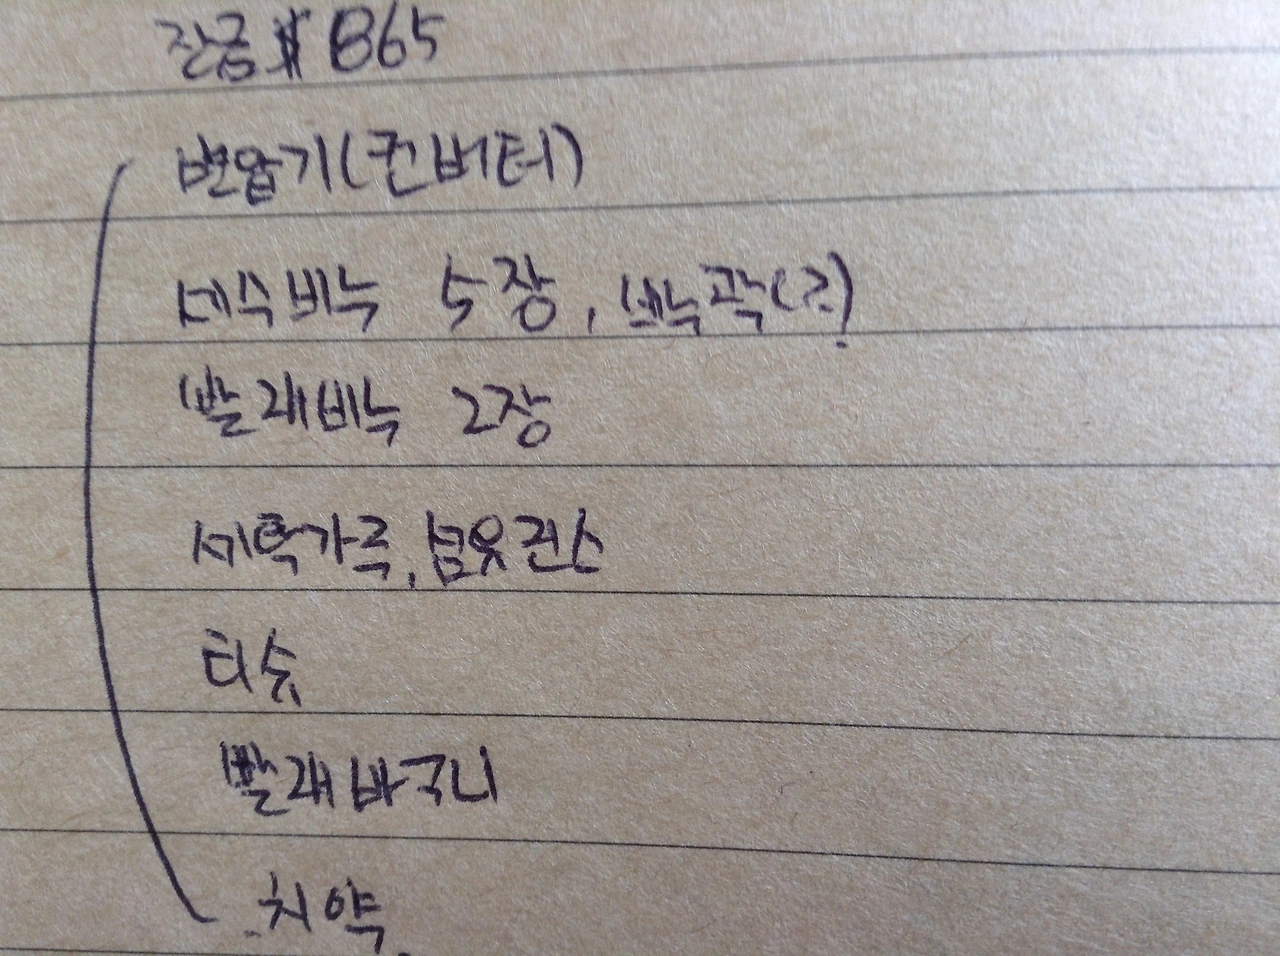 잔금 $ 865
변압기(컨버터)
세수비누 5장, 비누곽(?)
빨래비누 2장
세탁가루, 섬유린스
티슈
빨래바구니
치약